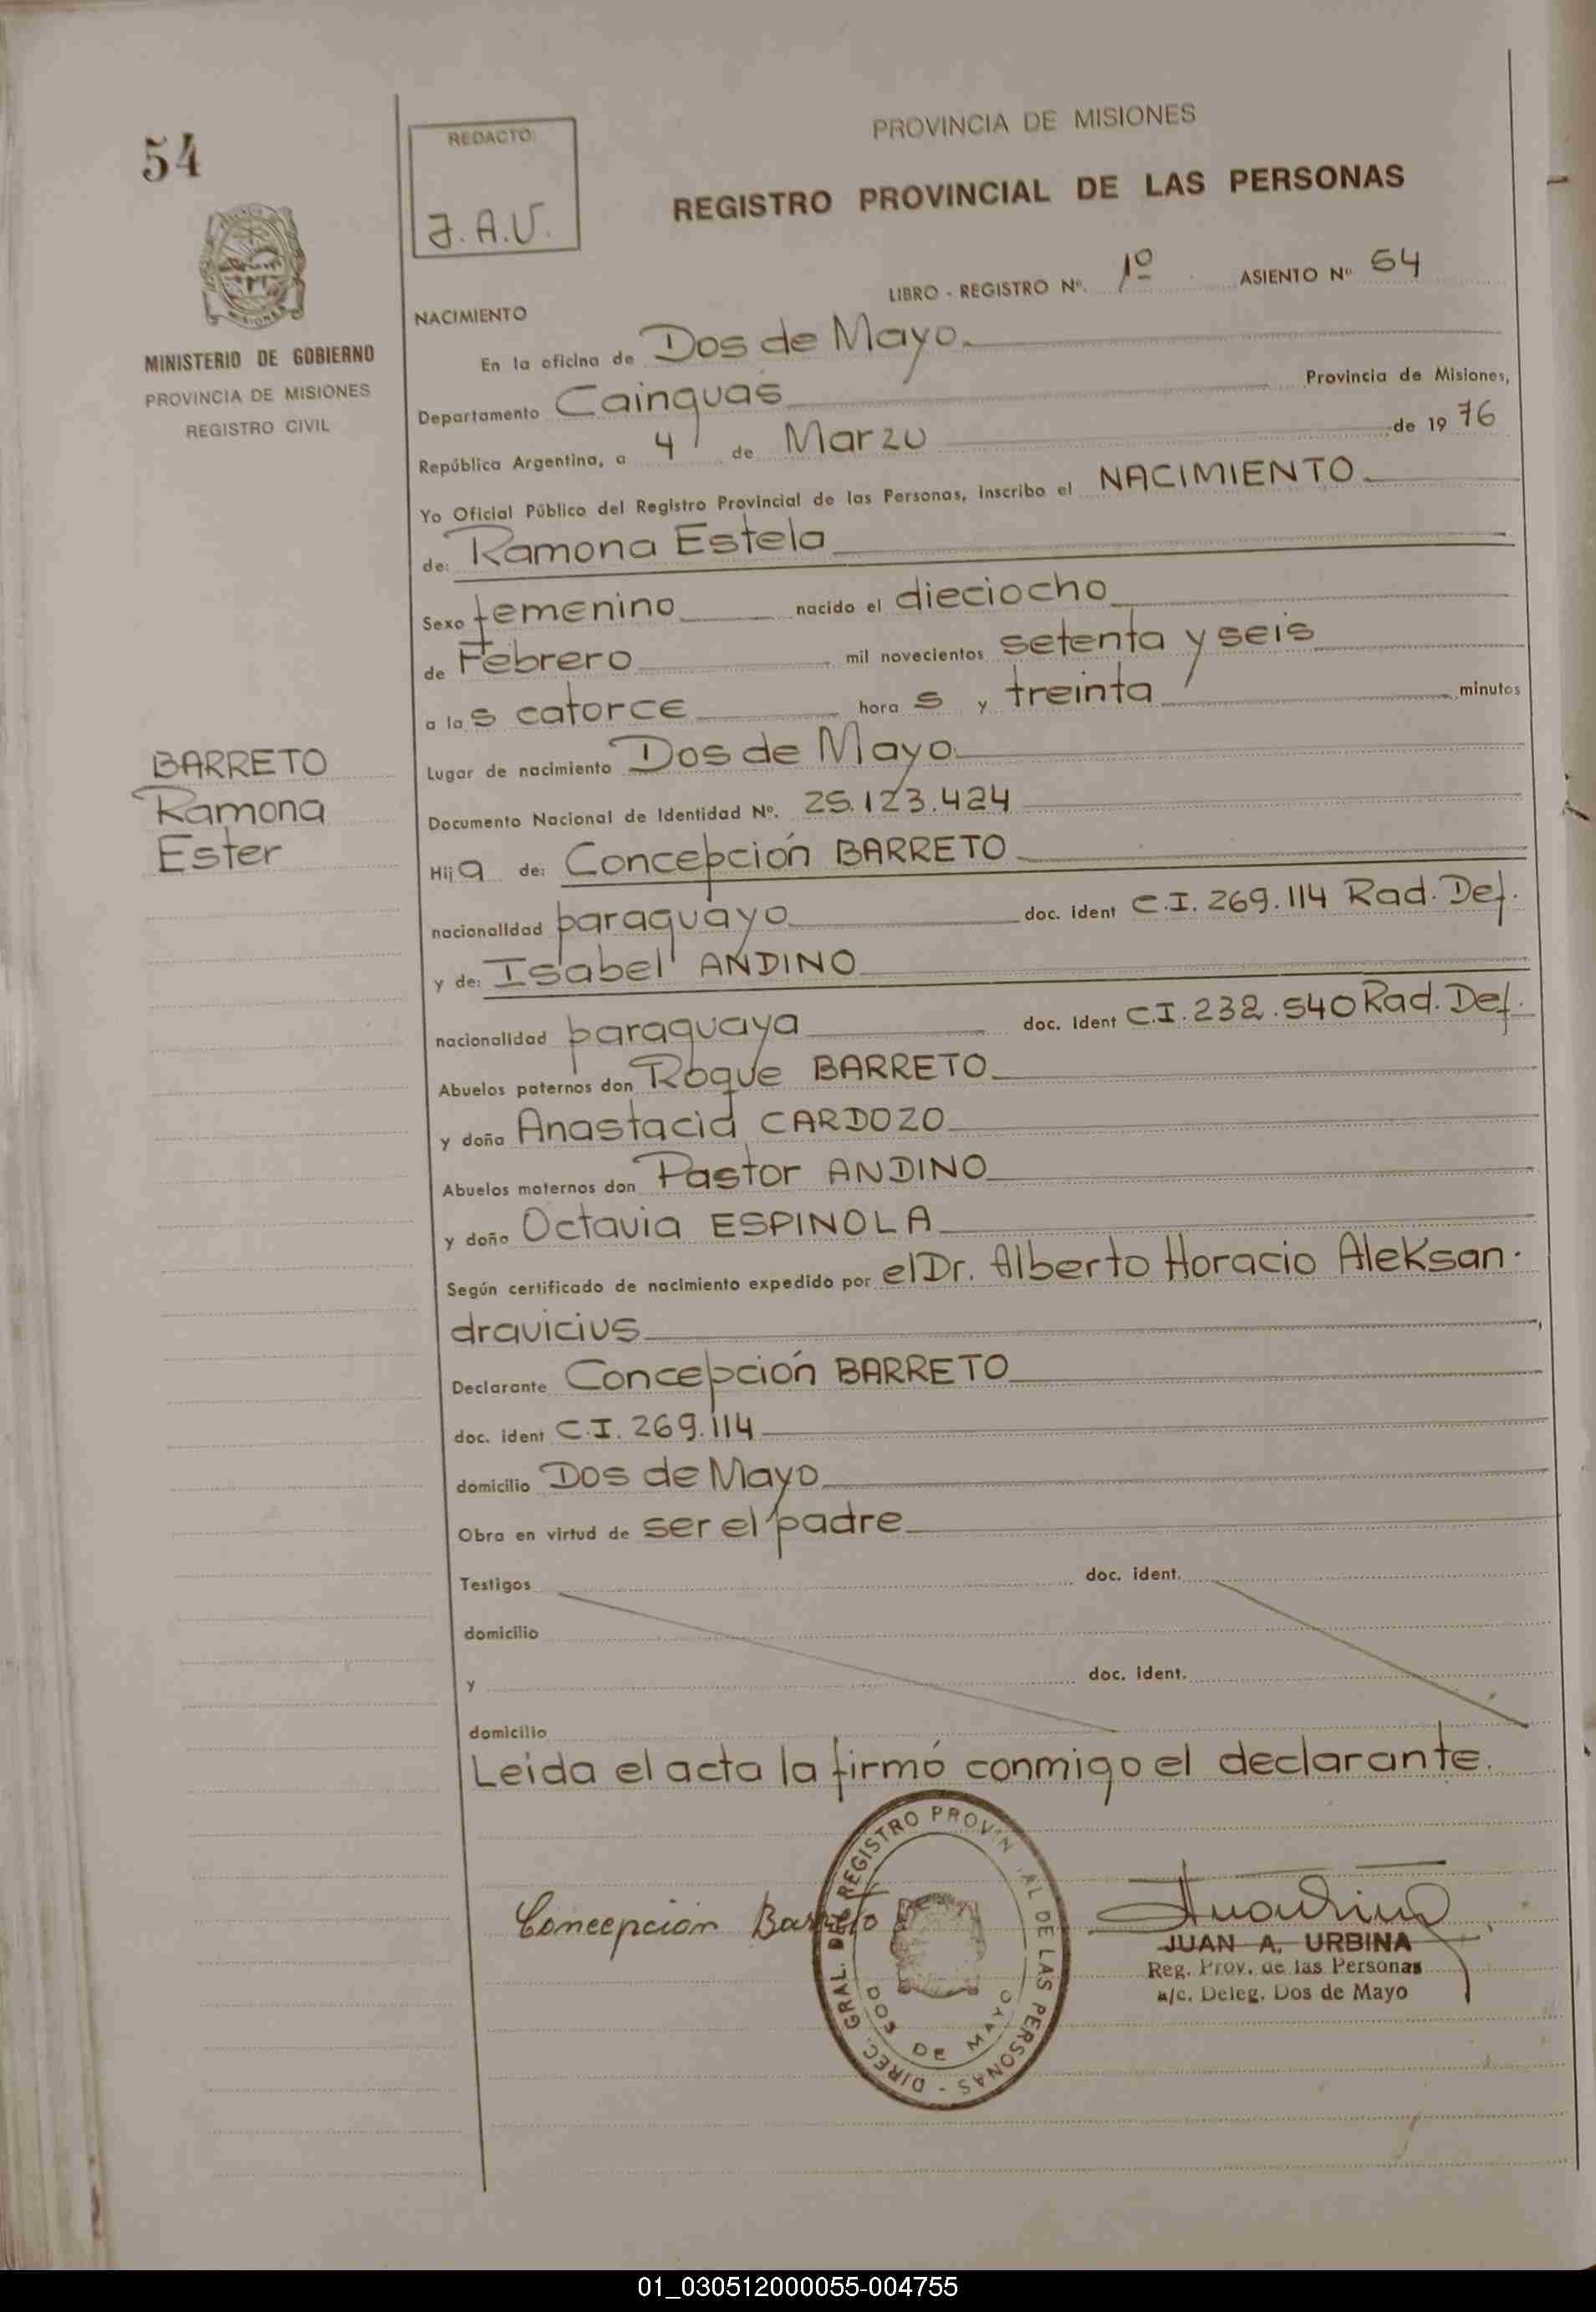 54
REDACTO:
J.A.U.
PROVINCIA DE MISIONES
REGISTRO PROVINCIAL DE LAS PERSONAS
LIBRO - REGISTRO Nº. 1º ASIENTO Nº 54
MINISTERIO DE GOBIERNO
PROVINCIA DE MISIONES
REGISTRO CIVIL
NACIMIENTO
En la oficina de Dos de Mayo.
Departamento Cainguás Provincia de Misiones,
República Argentina, a 4 de Marzo de 1976
Yo Oficial Público del Registro Provincial de las Personas, inscribo el NACIMIENTO
de: Ramona Estela
Sexo femenino nacido el dieciocho
de Febrero mil novecientos setenta y seis
a las catorce horas y treinta minutos
Lugar de nacimiento Dos de Mayo.
BARRETO
Ramona
Ester
Documento Nacional de Identidad Nº. 25.123.424
Hija de: Concepción BARRETO
nacionalidad paraguayo doc. ident C.I. 269.114 Rad. Def.
y de: Isabel ANDINO
nacionalidad paraguaya doc. ident C.I. 232.540 Rad. Def.
Abuelos paternos don Roque BARRETO
y doña Anastacia CARDOZO
Abuelos maternos don Pastor ANDINO
y doña Octavia ESPINOLA
Según certificado de nacimiento expedido por el Dr. Alberto Horacio Aleksan-
dravicius
Declarante Concepción BARRETO
doc. ident C.I. 269.114
domicilio Dos de Mayo
Obra en virtud de ser el padre
Testigos doc. ident.
domicilio
y doc. ident.
domicilio
Leida el acta la firmó conmigo el declarante.
Concepción Barreto
DIREC. GRAL. DEL REGISTRO PROVINCIAL DE LAS PERSONAS -
DOS DE MAYO
JUAN A. URBINA
Reg. Prov. de las Personas
a/c. Deleg. Dos de Mayo
01_030512000055-004755